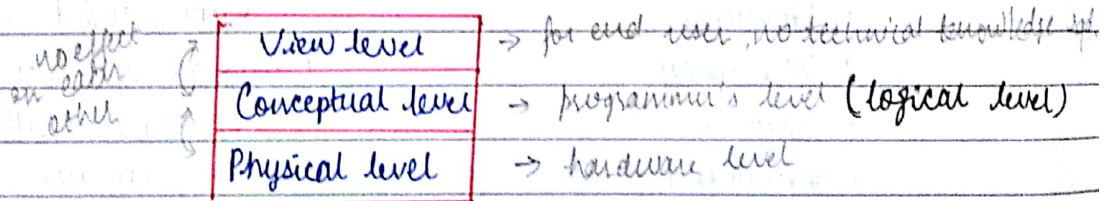 no effect
on each
other
View level → for end user, no technical knowledge
Conceptual level → programmer's level (logical level)
Physical level → hardware level